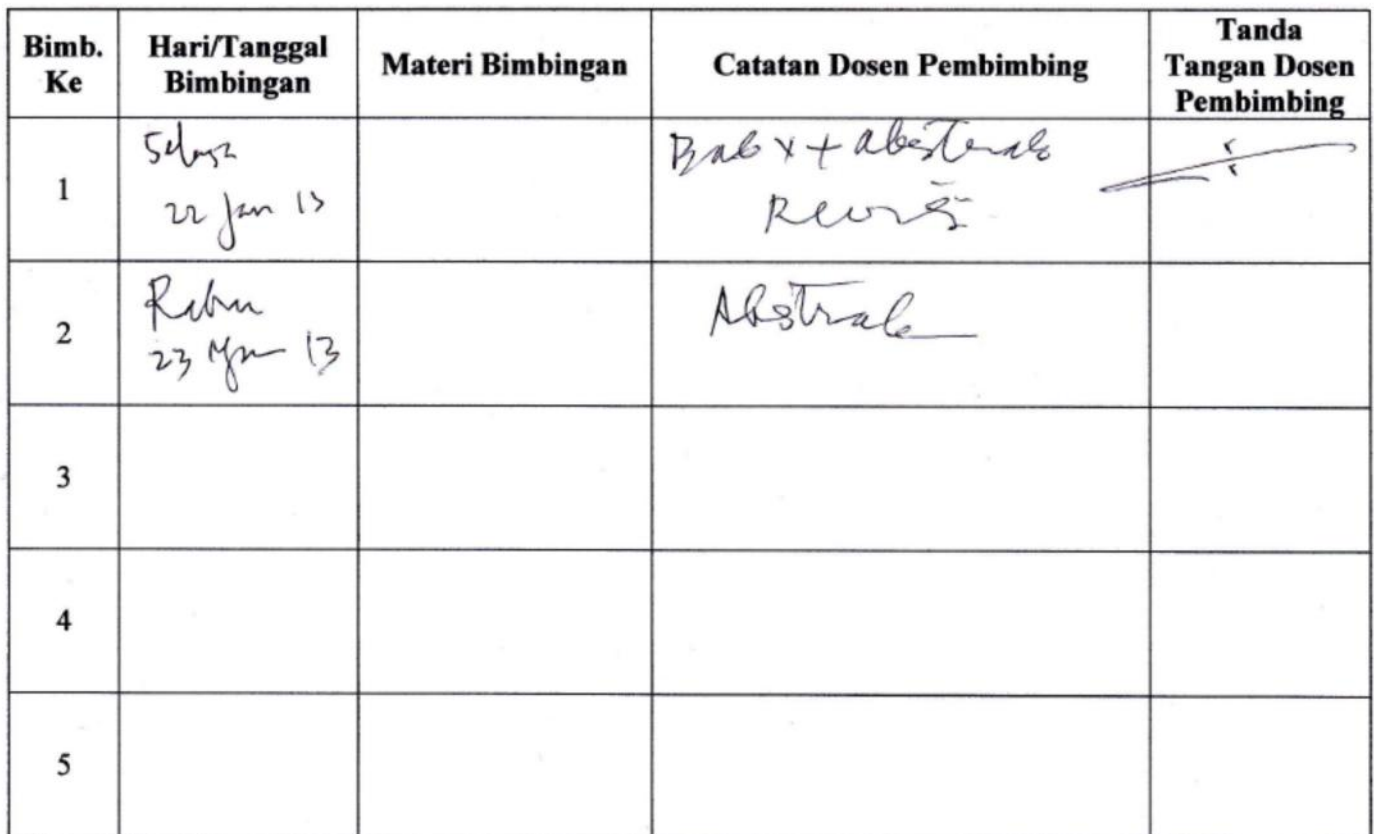 Bimb. Ke
Hari/Tanggal Bimbingan
Materi Bimbingan
Catatan Dosen Pembimbing
Tanda Tangan Dosen Pembimbing
1
Selasa
22 Jan 13
Bab + abstrak
Revisi
2
Rabu
23 Jan 13
Abstrak
3
4
5